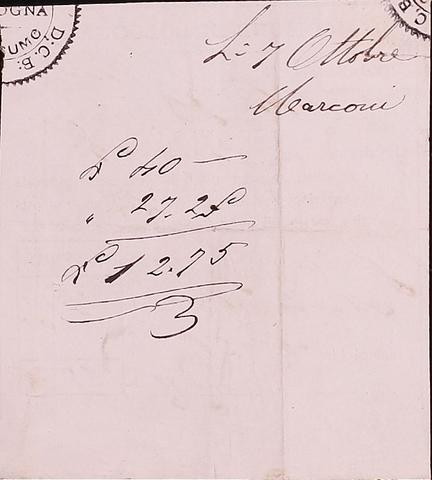 OGNA
UMO
D.C.B.
C.B
Li 7 Ottobre
Marconi
£ 40 —
" 27.25
£ 12.75
3